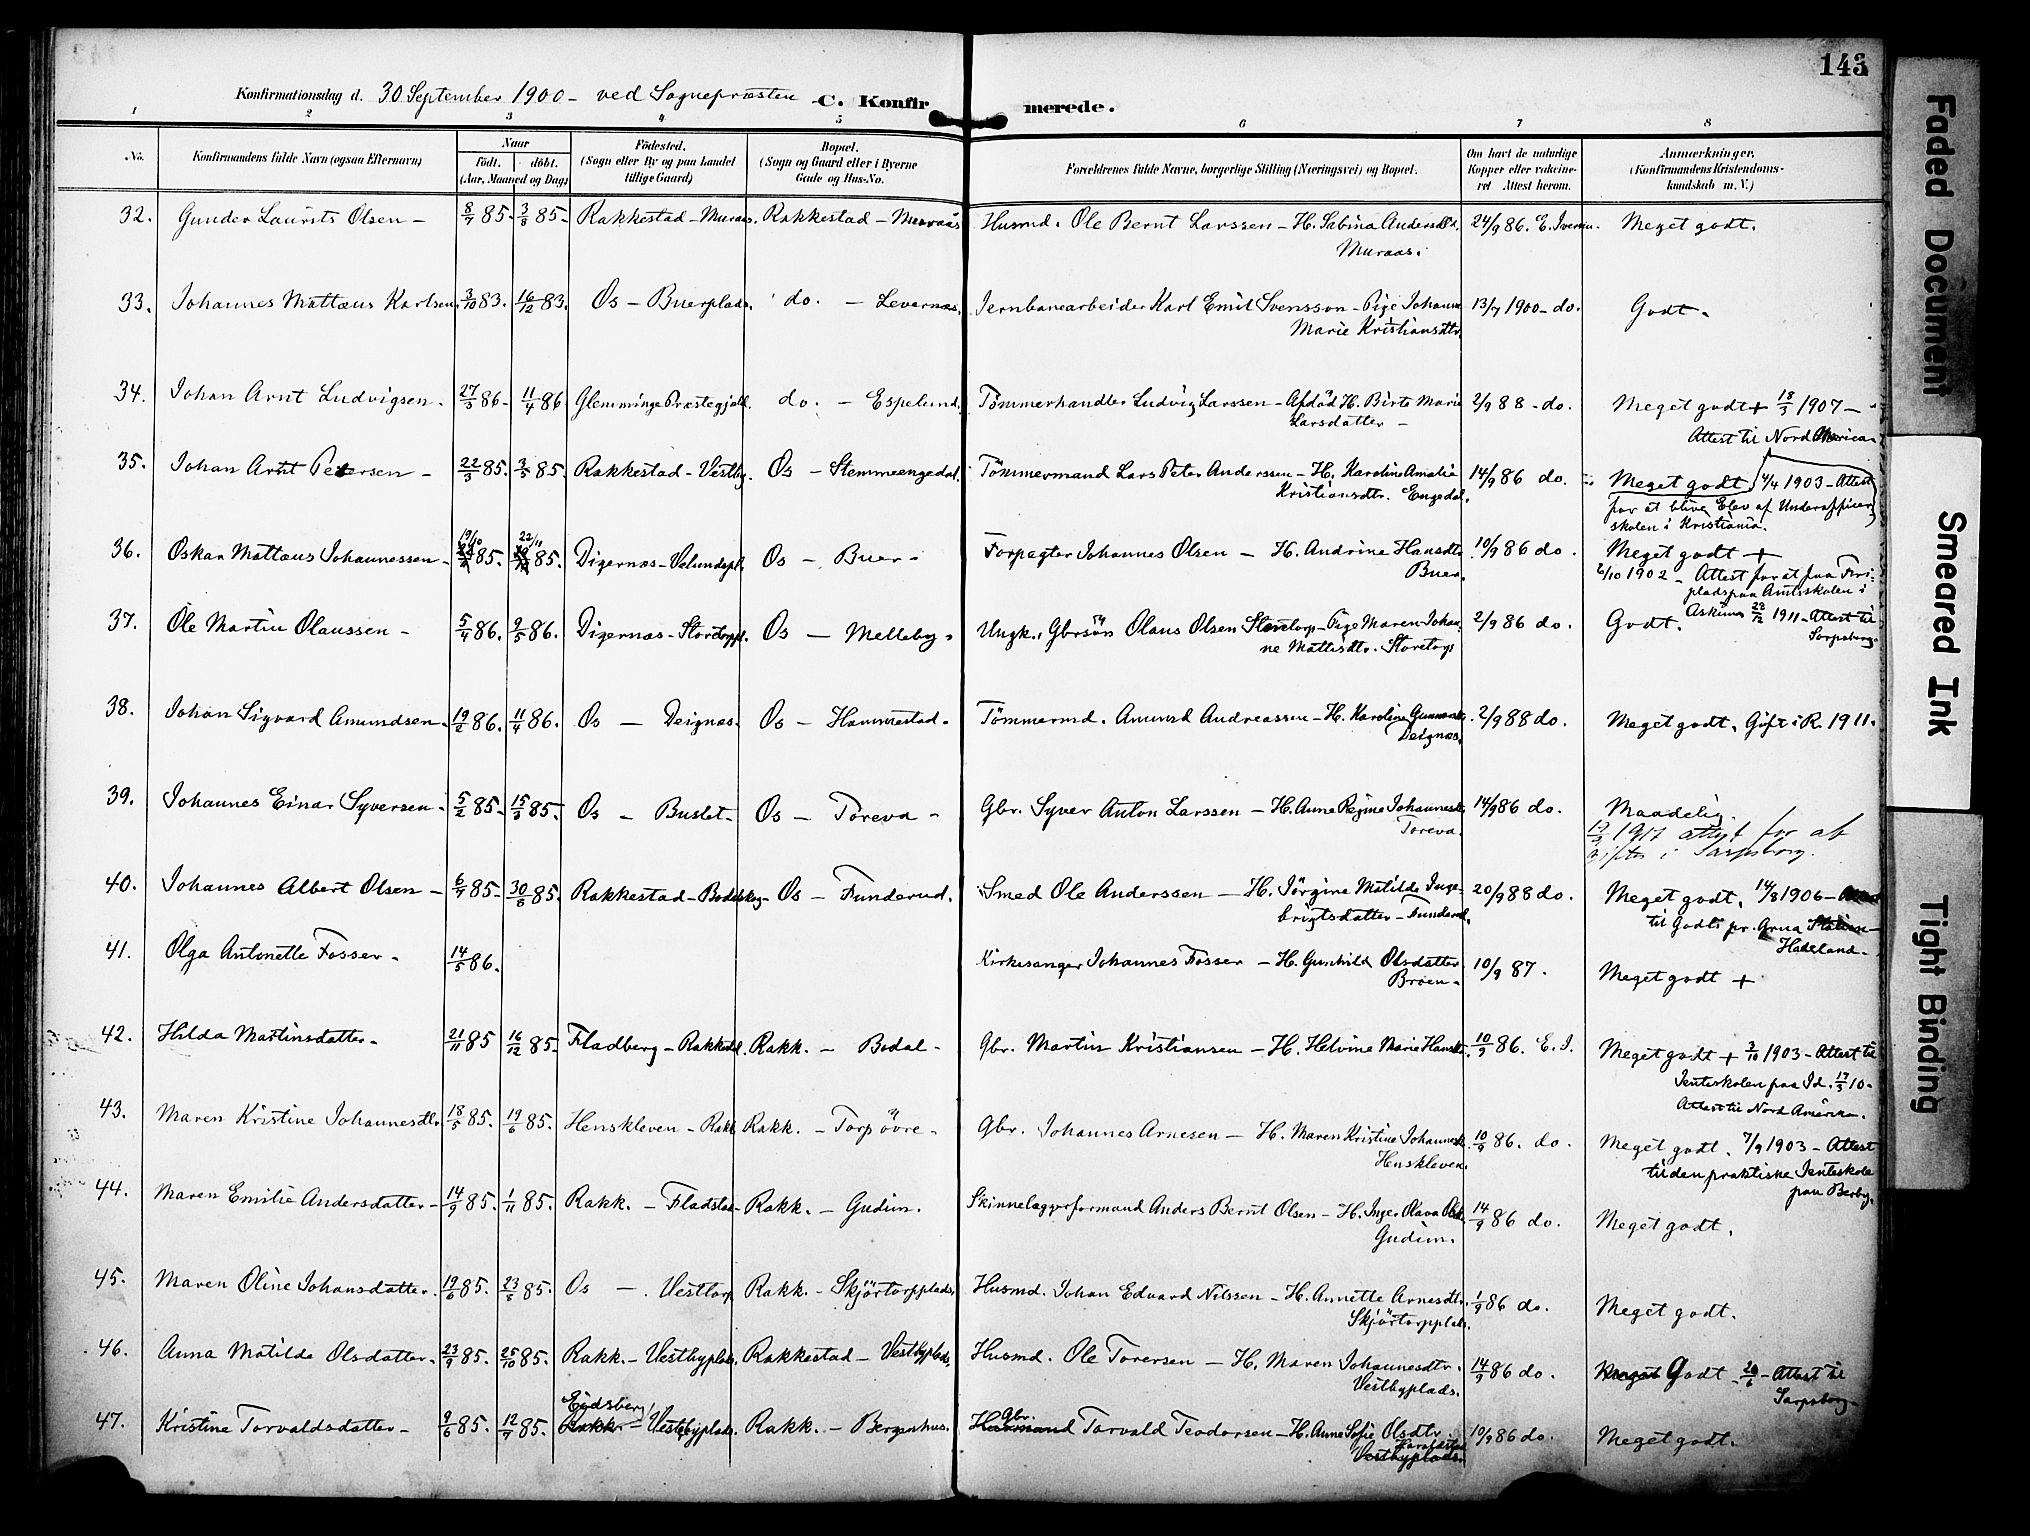 143
Konfirmationsdag d. 30 September 1900 - ved Sognepræsten C. Konfirmerede.
1 2 3 4 5 6 7 8
No. Konfirmandens fulde Navn (ogsaa Efternavn) Naar født. døbt. (Aar, Maaned og Dag) Fødested. (Sogn eller By og paa Landet tillige Gaard) Bopæl. (Sogn og Gaard eller i Byerne Gade og Hus-No. Forældrenes fulde Navne, borgerlige Stilling (Næringsvei) og Bopæl. Om havt de naturlige Kopper eller vakcineret Attest herom. Anmærkninger, (Konfirmandens Kristendomskundskab m. V.)
32. Gunder Laurits Olsen - 8/7 85. 3/8 85. Rakkestad - Muraas. Rakkestad - Muraas Husmd. Ole Bernt Larssen - H. Sabina Andersdtr. 24/9 86. E. Iversen. Meget godt.
Muraas.
33. Johannes Mattæus Karlsen 3/10 83. 16/12 83. Os - Buerplads. do. - Levernæs. Jernbanearbeider Karl Emil Svensson - Pige Johanne 13/7 1900 - do. Godt.
Marie Kristiansdtr.
34. Johan Arnt Ludvigsen. 27/3 86 - 11/4 86 Glemminge Præstegjeld. do. - Espelund. Tömmerhandler Ludvig Larssen - Afdöd H. Birte Marie 2/9 88 - do. Meget godt + 18/3 1907 -
Larsdatter - Attest til Nord Amerika
35. Johan Arnt Petersen - 22/3 85. 3/5 85. Rakkestad - Vestby. Os - Stemmeengedal. Tömmermand Lars Peter Anderssen - H. Karoline Amalie 14/9 86 do. Meget godt 4/4 1903 - Attest
Kristiansdtr. Engedal. for at blive Elev af Underofficer
skolen i Kristiania.
36. Oskar Mattæus Johannessen - 19/10 85. 22/11 85. Digernæs - Os - Buer - Forpagter Johannes Olsen - H. Andrine Hansdtr. 10/9 86 do. Meget godt +
Buer. 2/10 1902 - Attest for at faa Fri-
plads paa Amtsskolen i
Askim
37. Ole Martin Olaussen - 5/4 86. 9/5 86. Digernæs - Os - Melleby - Ungk., Gbrsön Olaus Olsen Storetorp - Pige Maren Johan- 2/9 86 do. Godt. 1911 - Attest til
ne Mattisdtr. Storetorp Sarpsborg.
38. Johan Sigvard Amundsen - 19/2 86. 11/4 86. Os - Deignæs. Os - Hammestad - Tömmermd. Amund Andreassen - H. Karoline 2/9 88 do. Meget godt. Gift i R. 1911.
Deignæs.
39. Johannes Einar Syversen - 5/2 85 - 15/3 85. Os - Buslet - Os - Töreva - Gbr. Syver Anton Larssen - H. Anne Regine Johannesdtr. 14/9 86 do. Maadelig.
Toreva. 1917 attest for at
giftes i Sarpsborg.
40. Johannes Albert Olsen - 6/7 85. 30/8 85. Rakkestad - Bodalskog - Os - Funderud. Smed Ole Anderssen - H. Jörgine Matilde Inge- 20/9 88 do. Meget godt. 14/8 1906 -
brigtsdatter - Funderud. til Godts pr. Grua Station
Hadeland -
41. Olga Antonette Fosser - 14/5 86. Kirkesanger Johannes Fosser - H. Gunhild Olsdatter 10/9 87. Meget godt +
Broen -
42. Hilda Martinsdatter - 21/11 85 16/12 85. Fladberg - Rakkestd. Rakk. - Bodal - Gbr. Martin Kristiansen - H. Helvine Marie Hansdtr. 10/9 86. E. I. Meget godt + 3/10 1903 - Attest til
Jenteskolen paa Id. 17/3 10 -
Attest til Nord Amerika.
43. Maren Kristine Johannesdtr. 18/5 85. 19/6 85. Henskleven - Rakk Rakk. - Torp övre - Gbr. Johannes Arnesen - H. Maren Kristine Johannesdtr. 10/9 86. do. Meget godt. 7/9 1903 - Attest
Henskleven. til den praktiske Jenteskole
paa Berby.
44. Maren Emilie Andersdatter - 14/9 85. 1/11 85. Rakk. - Fladstad - Rakk. - Gudim. Skinnelæggerformand Anders Bernt Olsen - H. Inger Olava Olsdtr. 14/9 86 do. Meget godt.
Gudim.
45. Maren Oline Johansdatter. 19/6 85. 23/8 85. Os - Vesttorp Rakk. - Skjörtorpplads. Husmd. Johan Edvard Nilssen - H. Annette Arnesdtr. 1/9 86 do. Meget godt.
Skjörtorpplads.
46. Anna Matilde Olsdatter. 23/9 85. 25/10 85. Rakk. - Vestbyplads. Rakkestad - Vestbyplads. Husmd. Ole Torersen - H. Maren Johannesdtr. 14/9 86 do. Meget Godt - 20/6 - Attest til
Vestbyplads. Sarpsborg -
47. Kristine Torvaldsdatter - 9/6 85. 12/7 85. Eidsberg Rakk. - Vestbyplads. Rakk. - Bergenhus. Gbr. Husmand Torvald Teodorsen - H. Anne Sofie Olsdtr. 10/9 86 do. Meget godt.
Vestbyplads.
Faded Document
Smeared Ink
Tight Binding